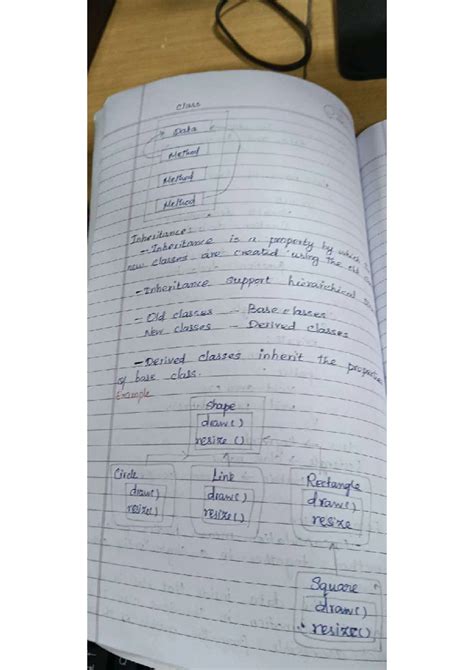 class
Data
Method
Method
Method
Inheritance:
- Inheritance is a property by which
new classes are created using the old
- Inheritance support hierarchical
- Old classes - Base classes
New classes - Derived classes
- Derived classes inherit the
of base class.
Example
Shape
draw()
resize ()
Circle Line Rectangle
draw() draw() draw()
resize() resize() resize
Square
draw()
resize()